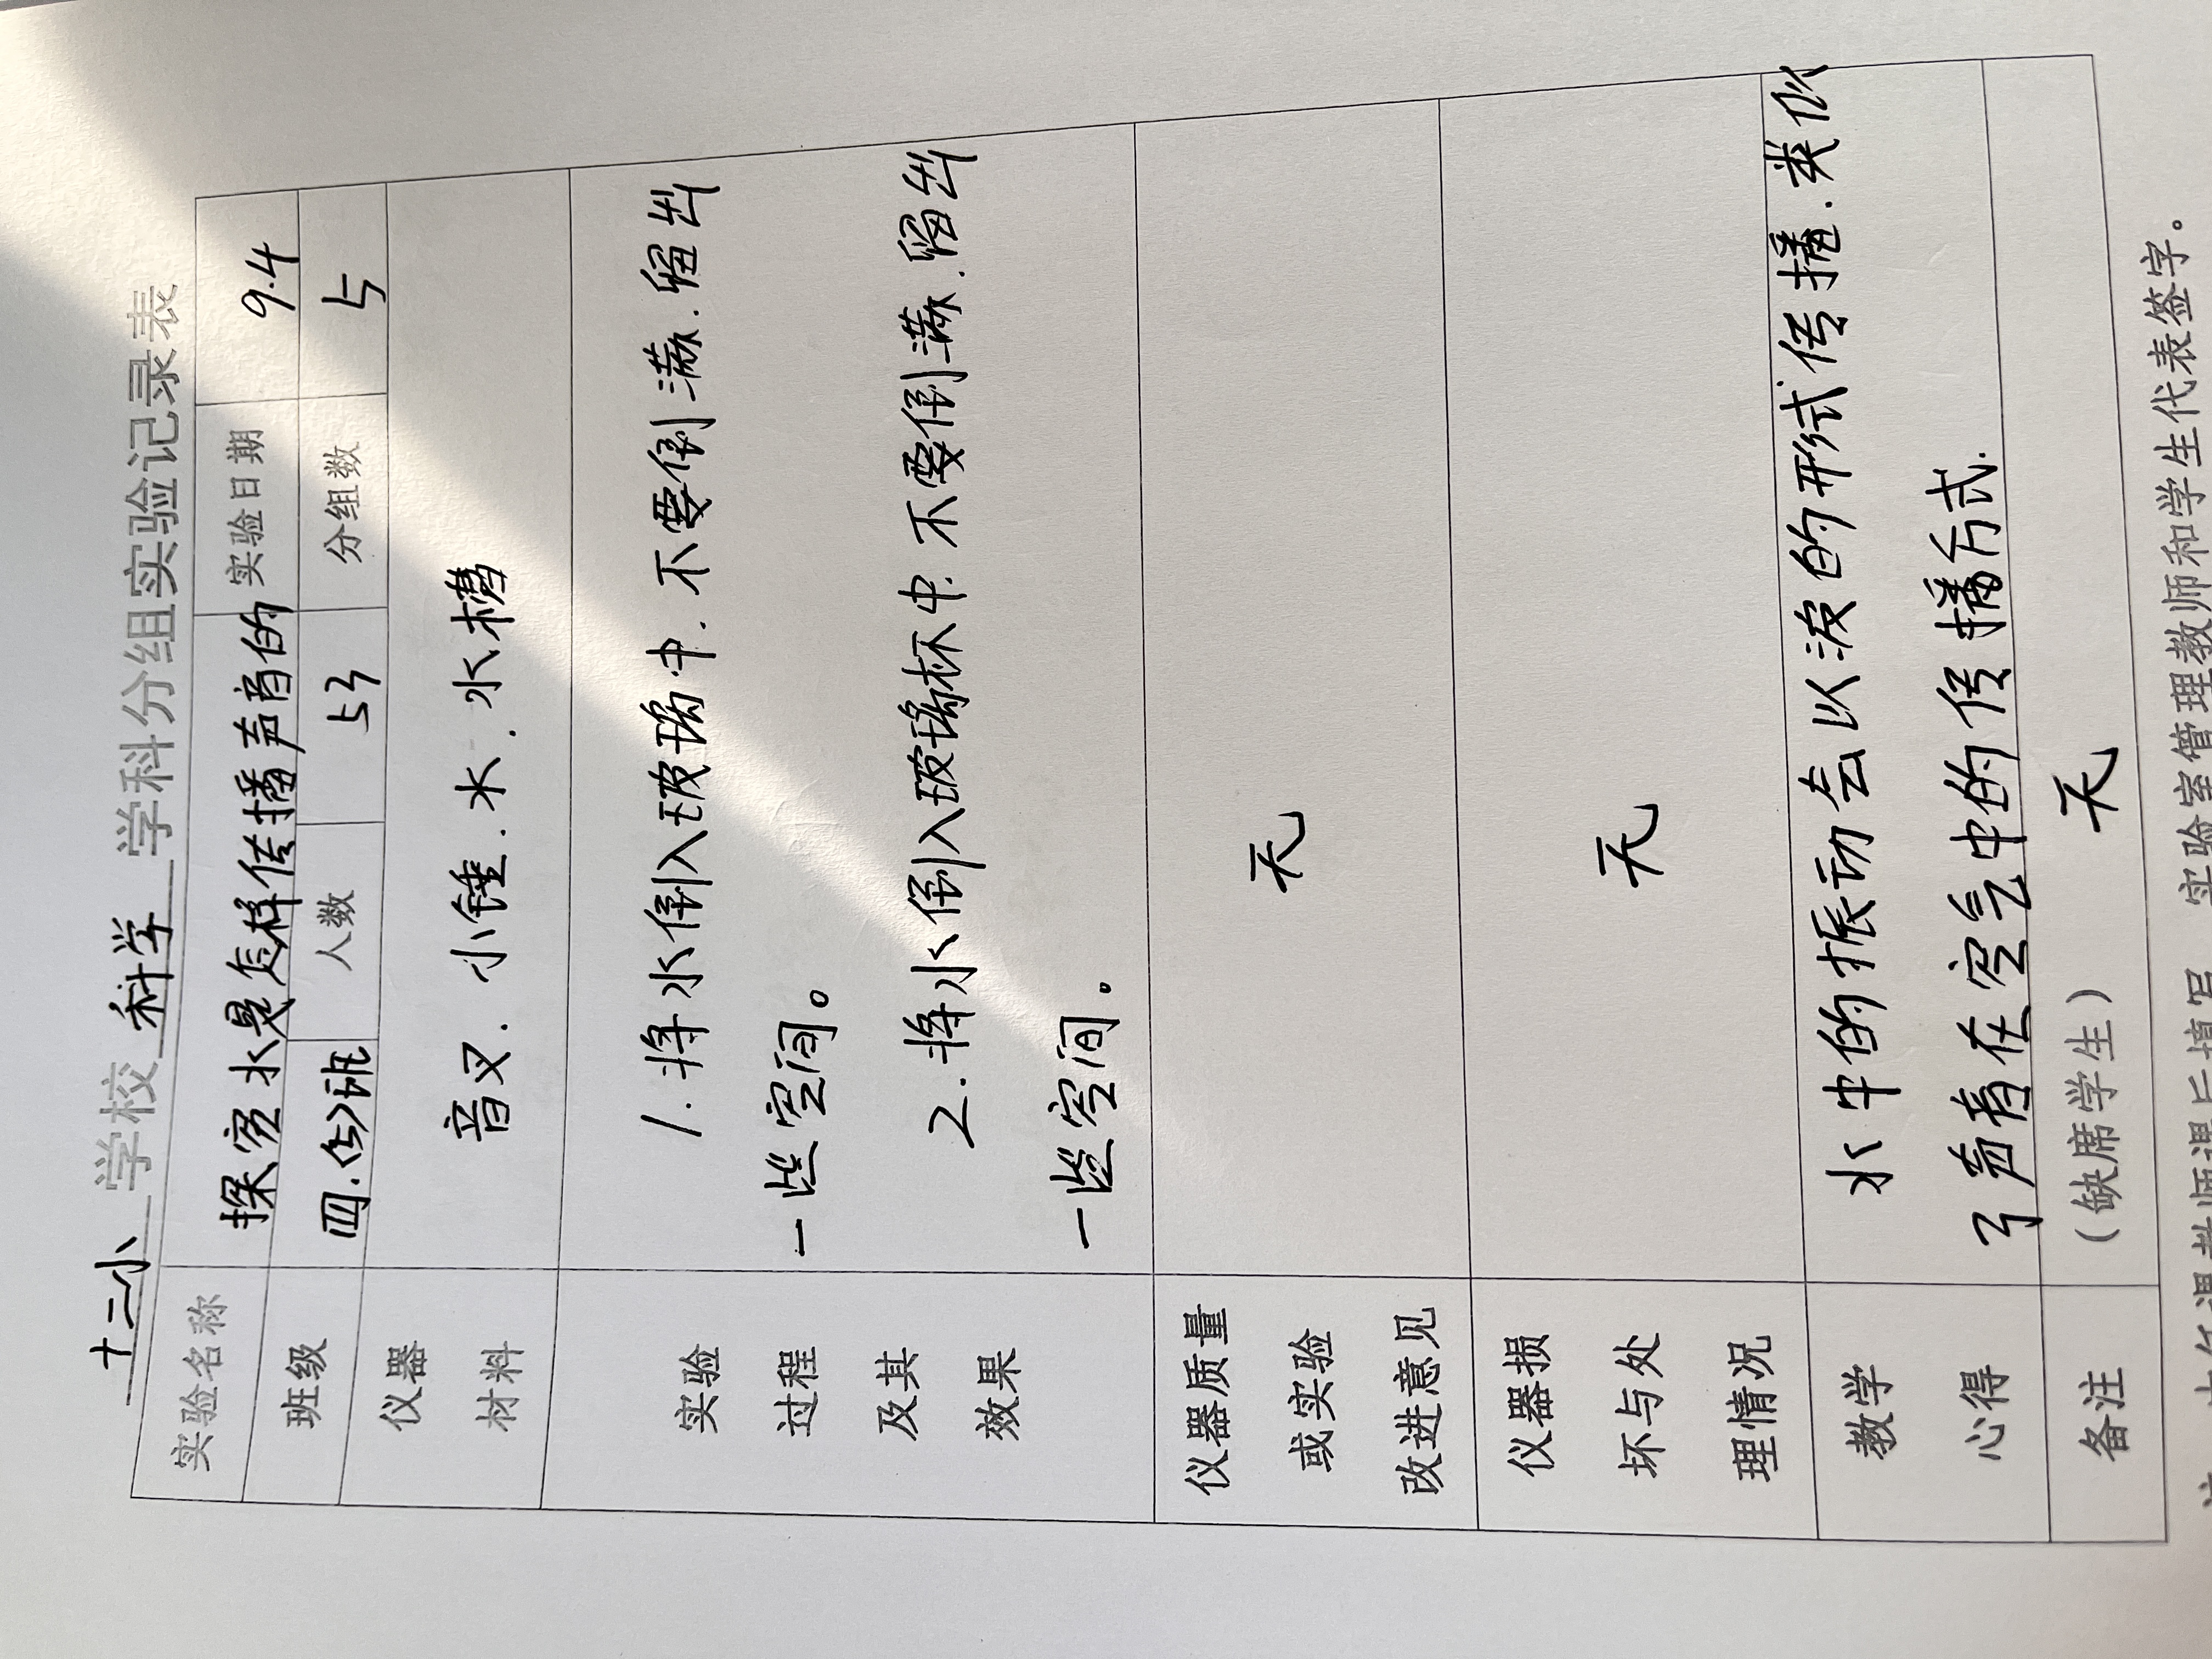 十二小 学校 科学 学科分组实验记录表
实验名称 探究水是怎样传播声音的 实验日期 9.4
班级 四.(5)班 人数 53 分组数 5
仪器材料 音叉.小锤.水.水槽
实验过程及其效果
1.将水倒入玻璃中.不要倒满.留出
一些空间。
2.将水倒入玻璃杯中.不要倒满.留出
一些空间。
仪器质量或实验改进意见 无
仪器损坏与处理情况 无
教学心得
水中的振动会以波的形式传播.类似
了声音在空气中的传播方式.
备注 (缺席学生) 无
任课教师课后填写 实验室管理教师和学生代表签字。